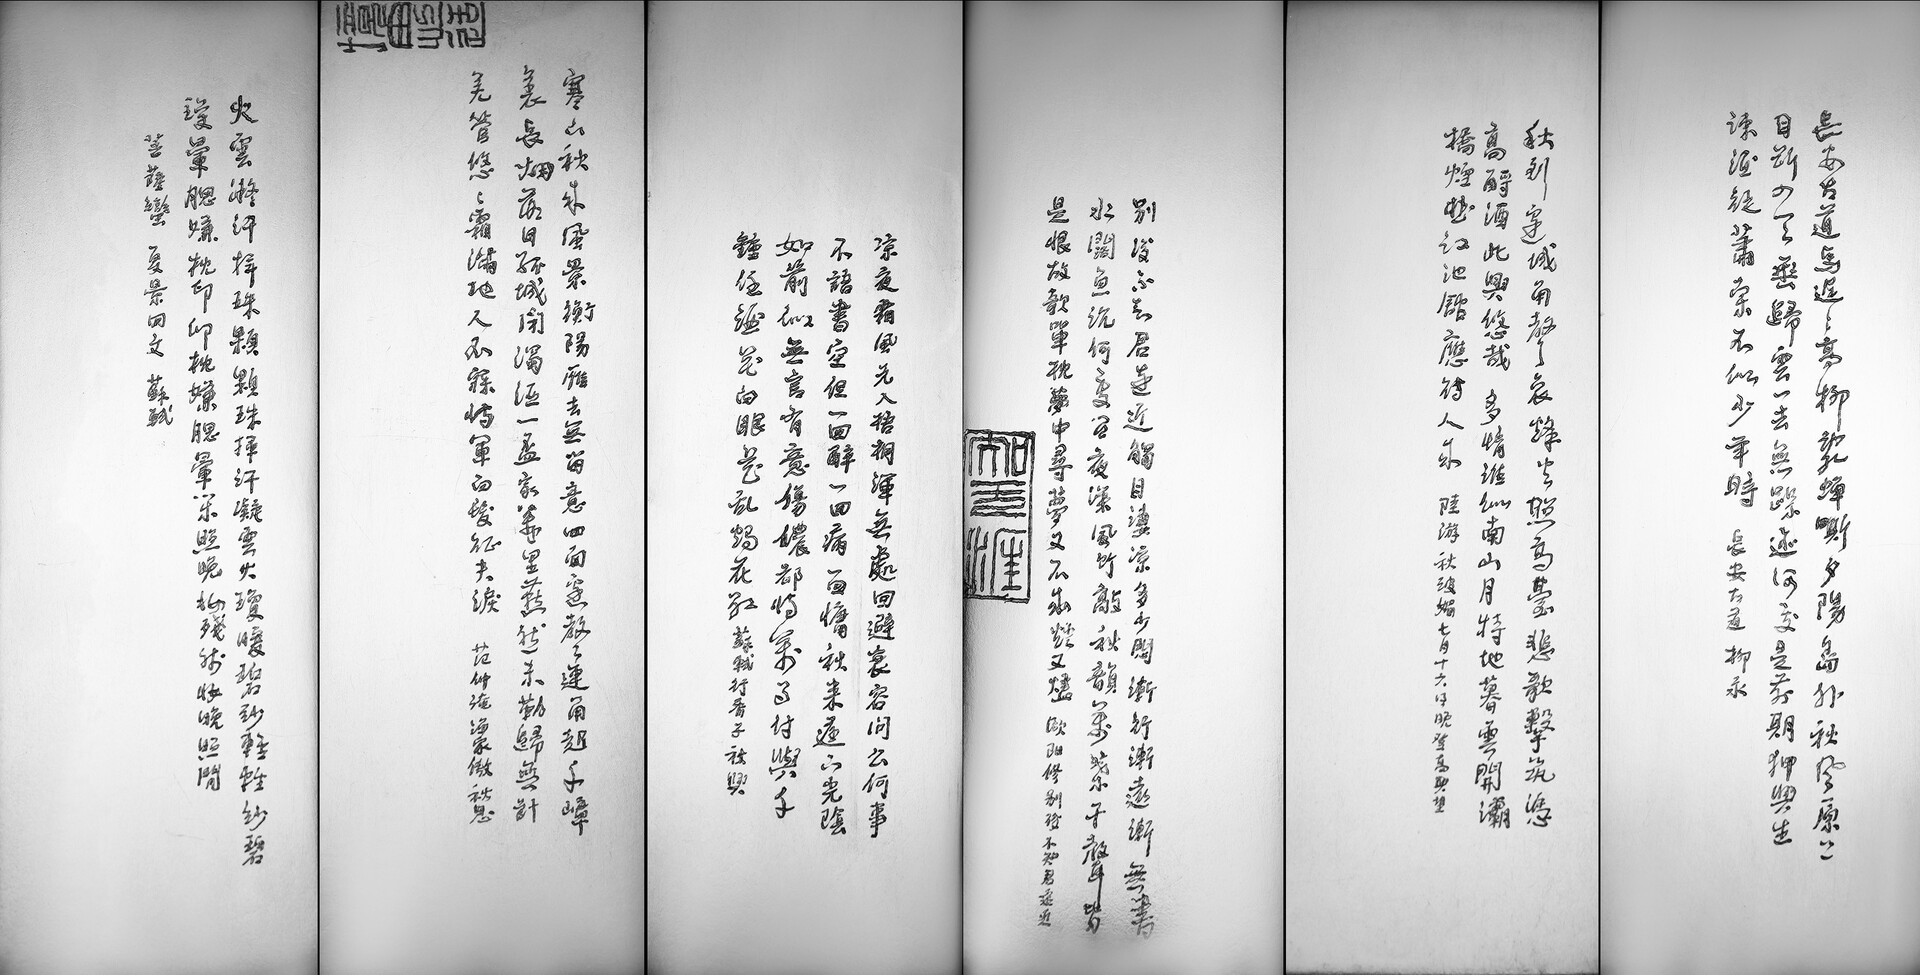 長安古道馬遲ミ高柳亂蟬嘶夕陽島外秋風原上
目斷四天垂歸雲一去無蹤迹何處是前期狎興生
疎酒徒蕭索不似少年時 長安古道 柳永
秋到邊城角聲哀烽火照高臺悲歌擊筑憑
高酹酒此興悠哉 多情誰似南山月特地暮雲開灞
橋煙柳江池館應待人來 陸游 秋波媚七月十六日晚登高興望
別後不知君遠近觸目淒涼多少悶漸行漸遠漸無書
水闊魚沉何處問夜深風竹敲秋韻萬葉千聲皆
是恨故欹單枕夢中尋夢又不成燈又燼 歐陽修 別後不知君遠近
涼夜霜風先入梧桐渾無處回避衰容問公何事
不語書空但一回醉一回病一回慵秋來庭下光陰
如箭似無言有意傷儂都將萬事付與千
鐘任酒花白眼花亂燭花紅 蘇軾行香子秋興
塞下秋來風景衡陽雁去無留意四面邊聲連角起千嶂
裏長烟落日孤城閉濁酒一盃家萬里燕然未勒歸無計
羌管悠ミ霜滿地人不寐將軍白髮征夫淚 范仲淹 漁家傲秋思
火雲凝汗揮珠顆顆珠揮汗凝雲火瓊暖碧紗輕輕紗碧
瓊暈腮嫌枕印印枕嫌腮暈閑照晚妝殘殘妝晚照閒
菩薩蠻 夏景回文 蘇軾